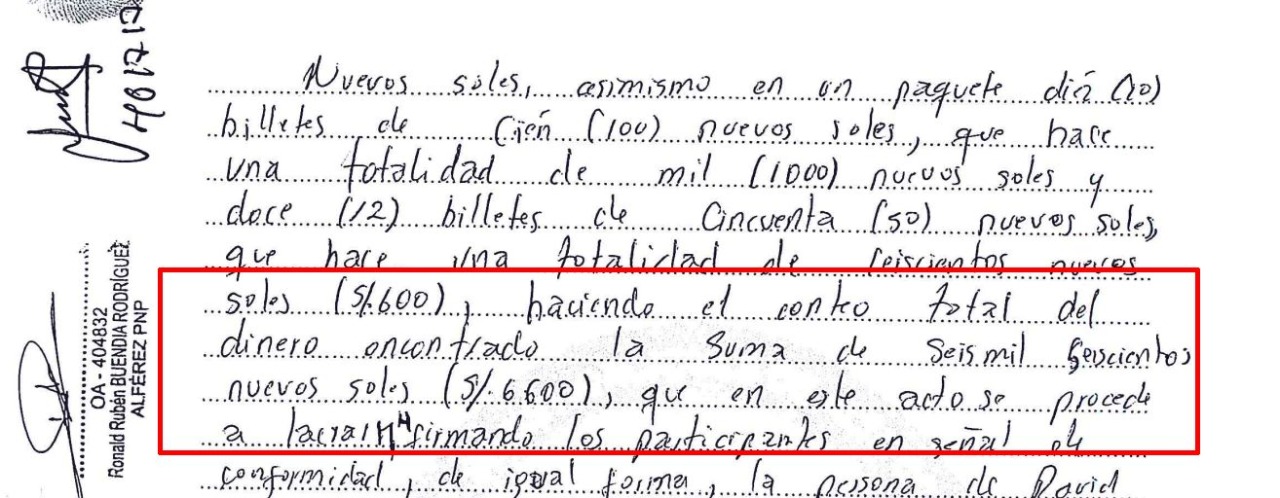 Nuevos soles, asimismo en un paquete dié (10)
billetes de Cien (100) nuevos soles, que hace
una totalidad de mil (1000) nuevos soles y
doce (12) billetes de Cincuenta (50) nuevos soles,
que hace una totalidad de seiscientos nuevos
soles (S/.600), haciendo el conteo total del
dinero encontrado la suma de Seis mil Seiscientos
nuevos soles (S/.6.600), que en este acto se procede
a lacrar firmando los participantes en señal de
conformidad, de igual forma, la persona de David
OA - 404832
Ronald Rubén BUENDIA RODRÍGUEZ
ALFÉREZ PNP